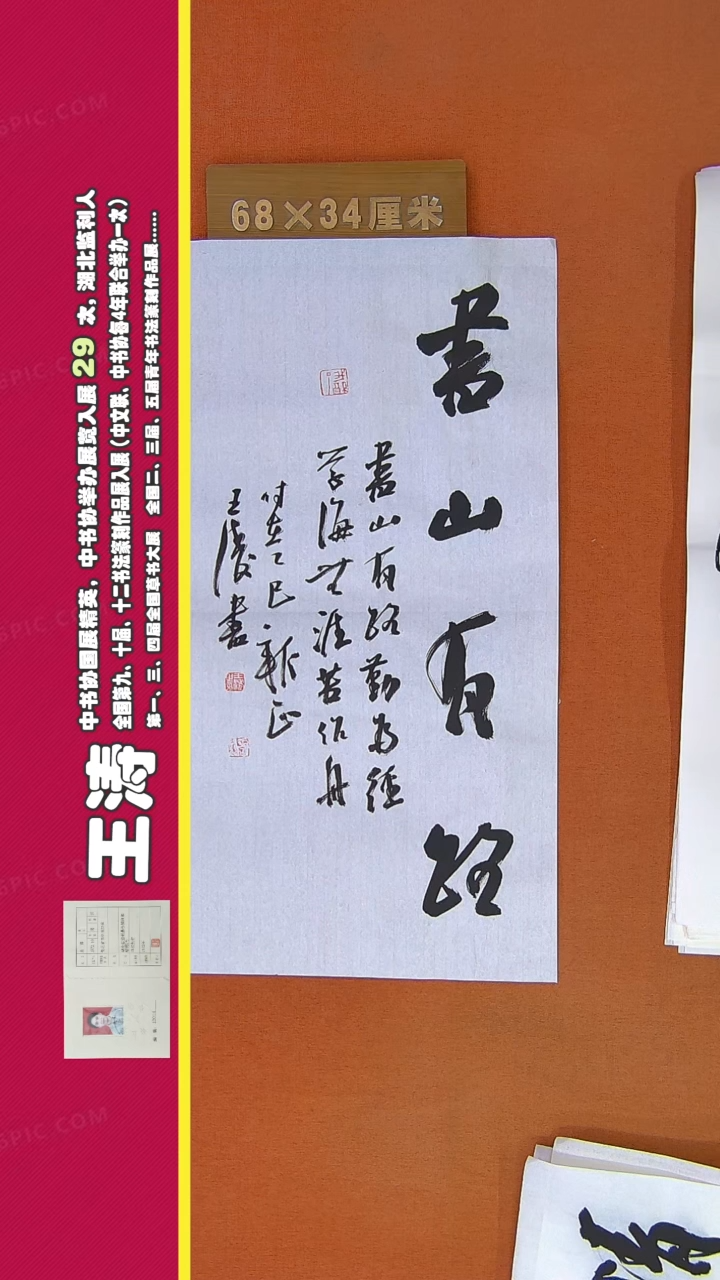 68×34厘米
書山有路
書山有路勤為徑
学海无涯苦作舟
时在乙巳
王涛書
王涛
中书协国展精英,中书协举办展览入展29次,湖北监利人
全国第九、十届、十二书法篆刻作品展入展(中文联、中书协每4年联合举办一次)
第一、三、四届全国草书大展 全国二、三届、五届青年书法篆刻作品展......